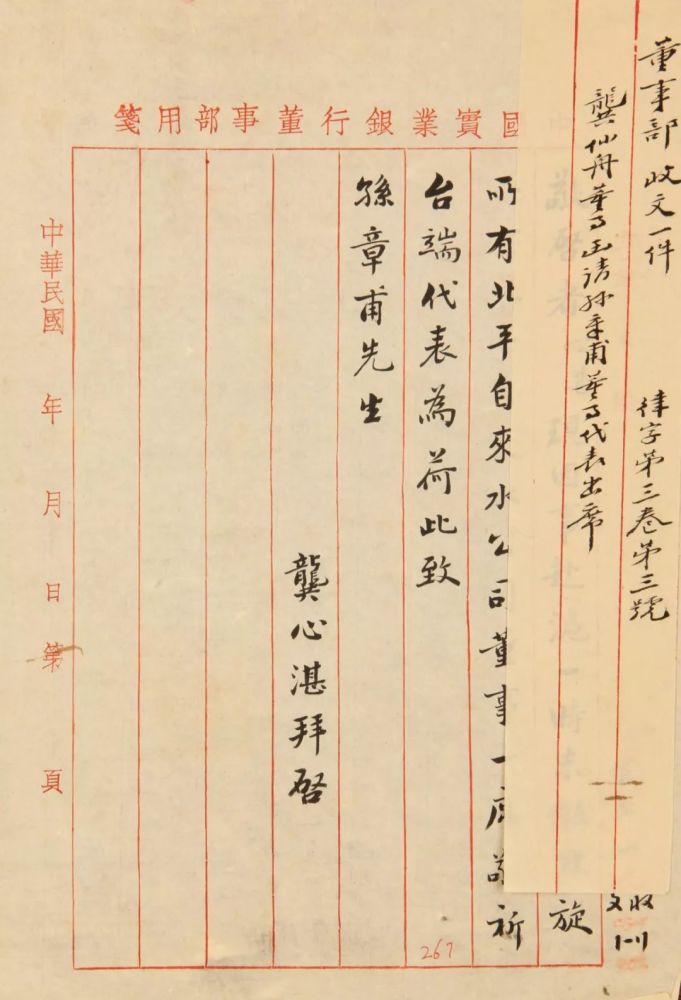 董事部收文一件 律字第三卷第三號
龔仙舟董事函請孫章甫董事代表出席
國實業銀行董事部用箋
收文
旋
所有北平自來水公司董事一席敬祈
台端代表為荷此致
孫章甫先生
龔心湛拜啓
中華民國 年 月 日 第 頁
267